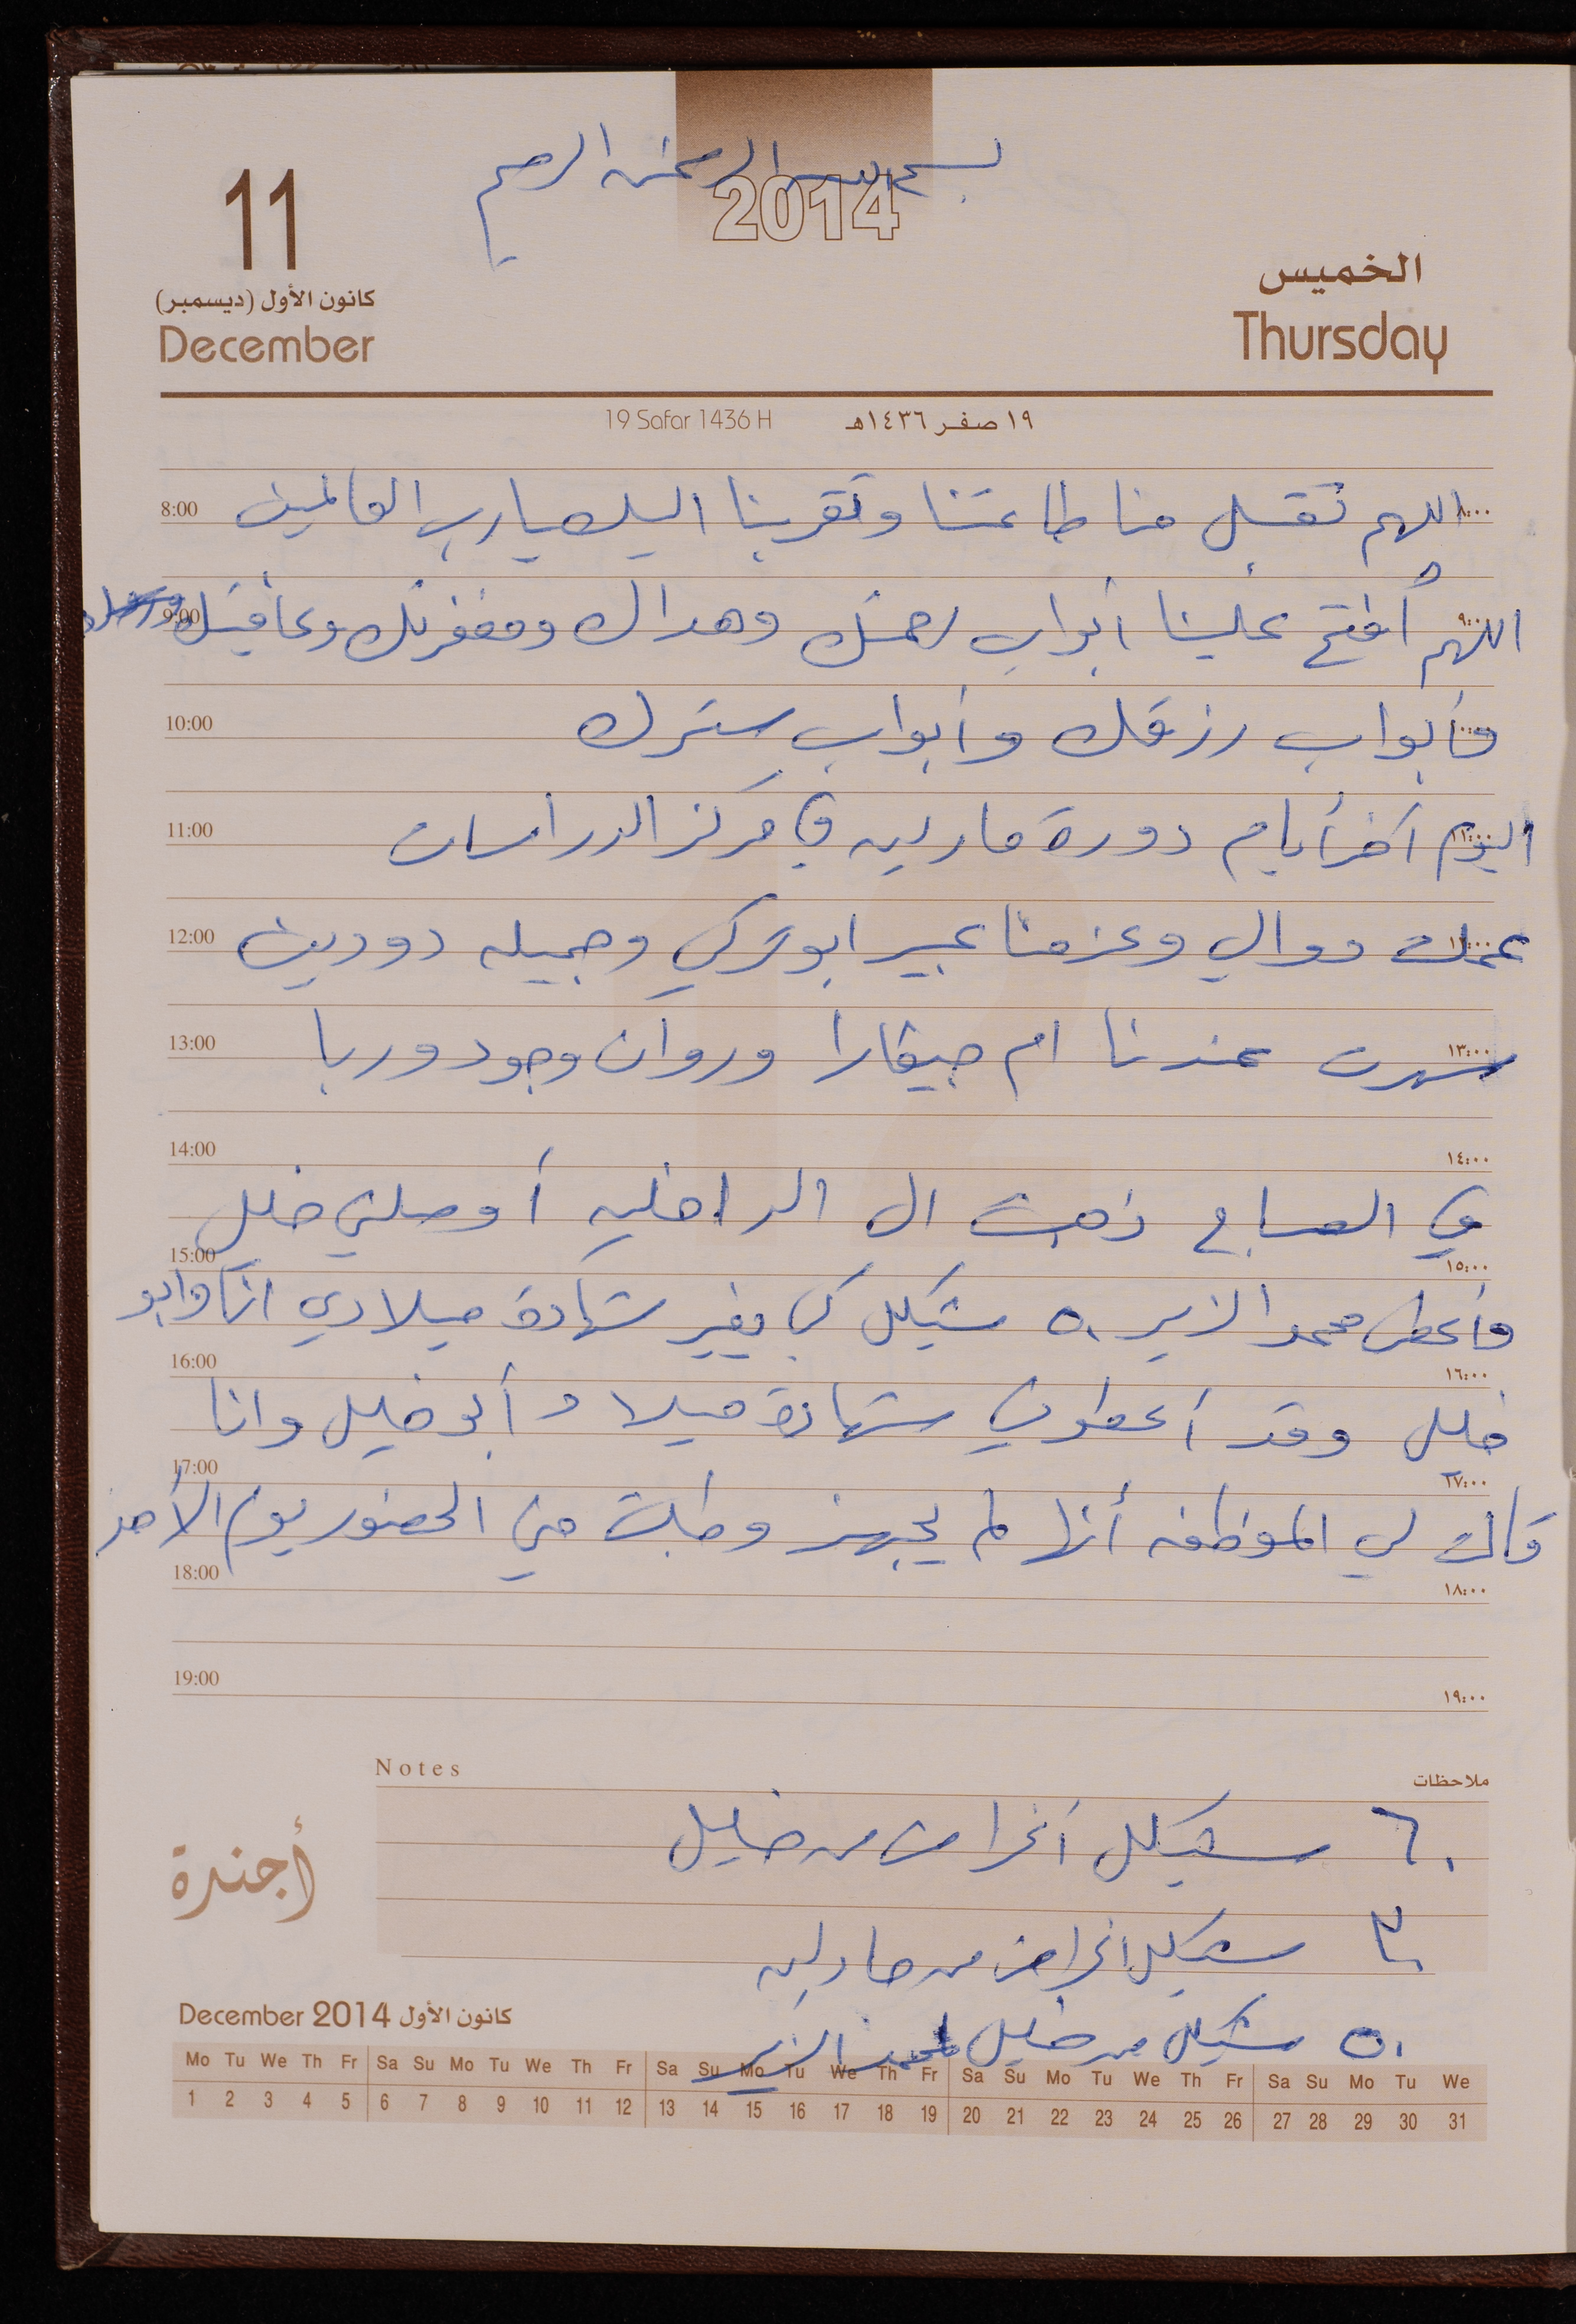 بسم الله الرحمن الرحيم
2014
11
كانون الأول (ديسمبر)
December
الخميس
Thursday
19 Safar 1436 H ١٩ صفر ١٤٣٦هـ
8:00 اللهم تقبل منا طاعتنا وتقربنا اليك يا رب العالمين ٨:٠٠
9:00 اللهم أفتح علينا أبواب رحمتك وهداك ومغفرتك وعافيتك ٩:٠٠
10:00 وأبواب رزقك وأبواب سترك ١٠:٠٠
11:00 اليوم آخر أيام دورة مارلين في مركز الدراسات ١١:٠٠
12:00 عملت دوالي وعزمنا عبير ابو تركي وجميله دودين ١٢:٠٠
13:00 سهرت عندنا ام جيفارا وروان وجود وربا ١٣:٠٠
14:00 ١٤:٠٠
في الصباح ذهبت الى الداخليه أوصلني خليل
15:00 ١٥:٠٠
وأعطى محمد الزير ٥٠ شيكل كي يغير شهادة ميلادي انا وابو
16:00 ١٦:٠٠
خليل وقد أعطوني شهادة ميلاد أبو خليل وانا
17:00 ١٧:٠٠
قالت لي الموظفه أنها لم تجهز وطلبت مني الحضور يوم الأحد
18:00 ١٨:٠٠
19:00 ١٩:٠٠
Notes ملاحظات
٦٠ شيكل أغراض من خليل
أجندة
٣٠ شيكل اغراض من مارلين
٥٠ شيكل من خليل لمحمد الزير
December 2014 كانون الأول
Mo Tu We Th Fr Sa Su Mo Tu We Th Fr Sa Su Mo Tu We Th Fr Sa Su Mo Tu We Th Fr Sa Su Mo Tu We
1 2 3 4 5 6 7 8 9 10 11 12 13 14 15 16 17 18 19 20 21 22 23 24 25 26 27 28 29 30 31